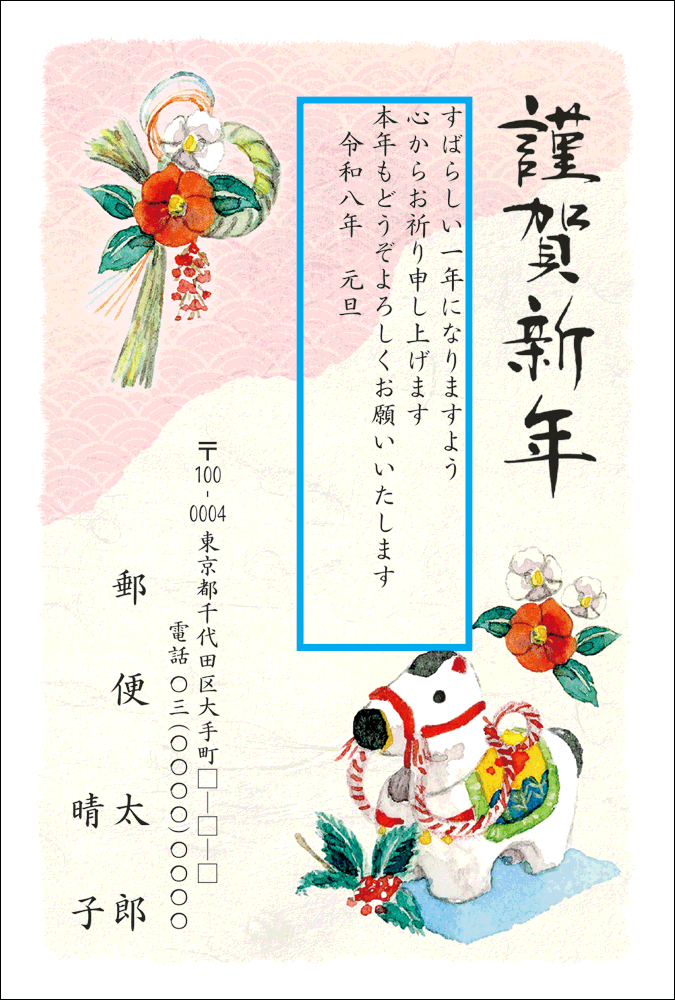 謹賀新年
すばらしい一年になりますよう
心からお祈り申し上げます
本年もどうぞよろしくお願いいたします
令和八年　元旦
〒100-0004 東京都千代田区大手町□―□―□
電話 〇三(〇〇〇〇)〇〇〇〇
郵便 太郎
晴子